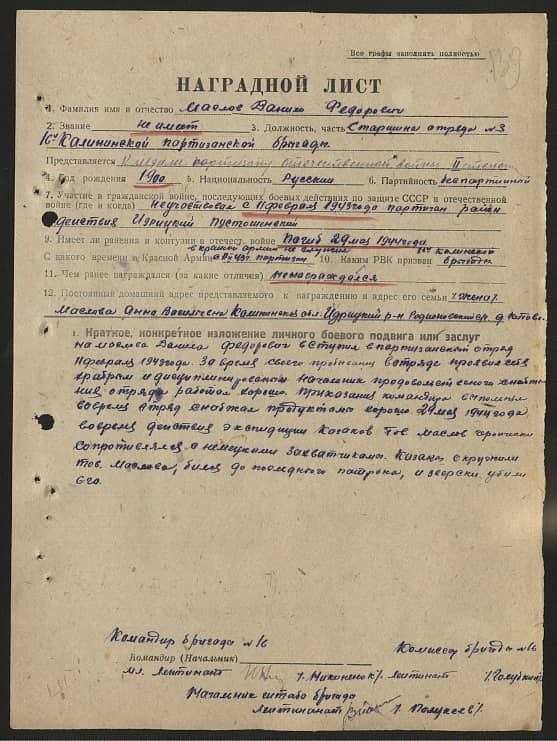 Все графы заполнять полностью
НАГРАДНОЙ ЛИСТ
1. Фамилия имя и отчество Маслов Данило Федорович
2. Звание не имеет 3. Должность, часть Старшина отряда №3
16й Калининской партизанской бригады.
Представляется К медали партизану отечественной войны II степени
4. Год рождения 1900 5. Национальность Русский 6. Партийность беспартийный
7. Участие в гражданской войне, последующих боевых действиях по защите СССР и отечественной
войне (где и когда) Неучаствовал с 11 февраля 1943 года партизан район
действия Идрицкий Пустошенский
9. Имеет ли ранения и контузии в отечест. войне Погиб 29 мая 1944 года
в красной армии не служил
С какого времени в Красной Армии 10. Каким РВК призван бригады
11. Чем ранее награждался (за какие отличия) Ненаграждался
12. Постоянный домашний адрес представляемого к награждению и адрес его семьи /жена/
Маслова Анна Калининская обл. Идрицкий р-н д.
I. Краткое, конкретное изложение личного боевого подвига или заслуг
Данила Федорович вступил в партизанский отряд
11 февраля 1943 года. За время своего пребывания в отряде проявил себя
храбрым и дисциплинированым Начальник продовольственого снабже-
ния отряда работал хорошо. Приказания командира выполнял
вовремя отряд снабжал продуктами хорошо 29 мая 1944 года
вовремя действия экспидиции Казаков Тов Маслов героически
сопротивлялся с немецкими захватчиками. Казаки окружили
тов. Маслова, бился до последнего патрона, и зверски убили
его.
Командир бригада №16 Комиссар бригады №16
Командир (Начальник)
мл. лейтинант лейтинант
Начальник штаба бригада
лейтинанат